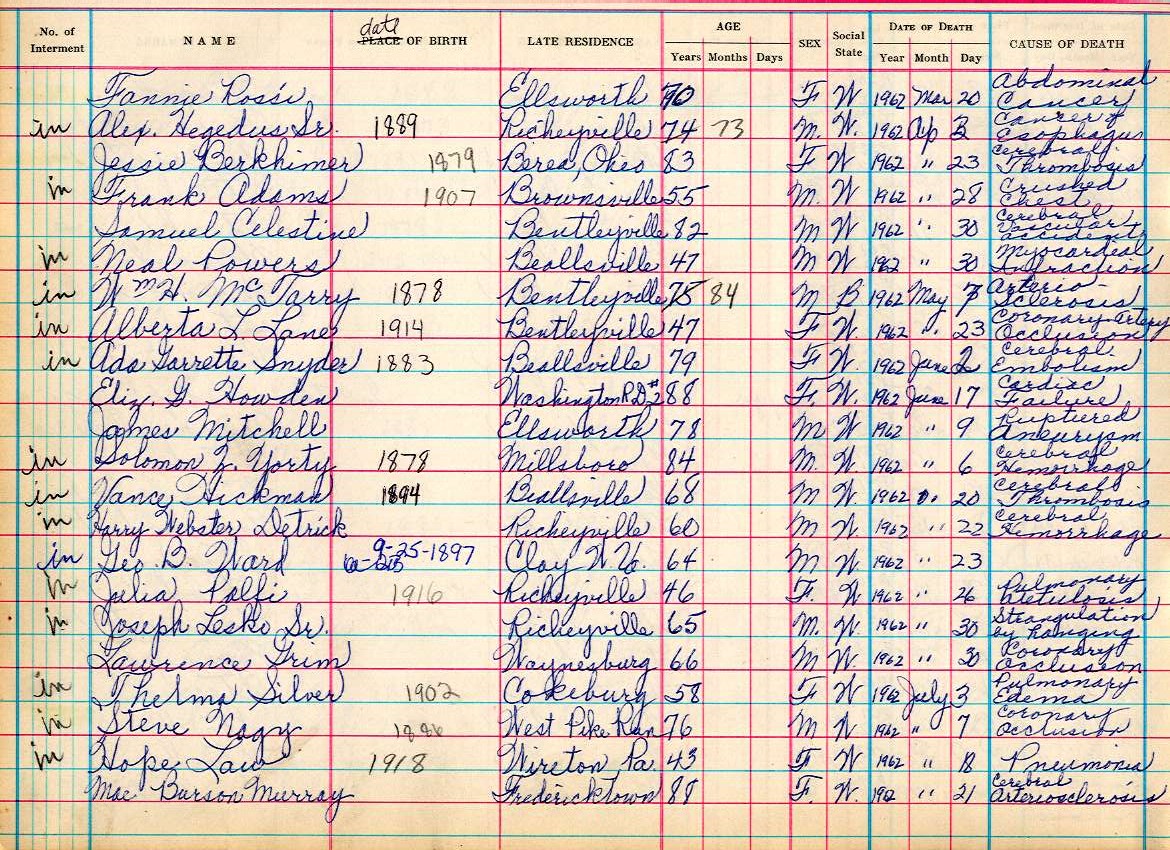 No. of Interment NAME date PLACE OF BIRTH LATE RESIDENCE AGE Years Months Days SEX Social State DATE OF DEATH Year Month Day CAUSE OF DEATH
Fannie Rossi Ellsworth 70 F W 1962 Mar 20 Abdominal Cancer
in Alex. Hegedus Sr. 1889 Richeyville 74 73 M. W. 1962 Ap 3 Cancer of Esophagus
Jessie Berkhimer 1879 Berea, Ohio 83 F W 1962 " 23 Cerebral Thrombosis
in Frank Adams 1907 Brownsville 55 M. W 1962 " 28 Crushed Chest
Samuel Celestine Bentleyville 82 M W 1962 " 30 Cerebral Vascular
in Neal Powers Beallsville 47 M W 1962 " 30 Myocardial Infraction
in Wm H. McTarry 1878 Bentleyville 75 84 M B 1962 May 7 Arterio-Sclerosis
in Alberta L. Lane 1914 Bentleyville 47 F W. 1962 " 23 Coronary Artery Occlusion
in Ada Garrette Snyder 1883 Beallsville 79 F W. 1962 June 2 Cerebral Embolism
Eliz. G. Howden Washington R.D.#2 88 F. W. 1962 June 17 Cardiac Failure
James Mitchell Ellsworth 78 M W 1962 " 9 Ruptured Aneurysm
in Solomon Z. Yorty 1878 Millsboro 84 M. W 1962 " 6 Cerebral Hemorrhage
in Vance Hickman 1894 Beallsville 68 M W 1962 " 20 Cerebral Thrombosis
in Harry Webster Detrick Richeyville 60 M W 1962 " 22 Cerebral Hemorrhage
in Geo. B. Ward 9-25-1897 Clay N.Y. 64 M W 1962 " 23
in Julia Palfi 1916 Richeyville 46 F. W. 1962 " 26 Pulmonary
in Joseph Lesko Sr. Richeyville 65 M. W. 1962 " 30 Strangulation by hanging
Lawrence Grim Waynesburg 66 M W. 1962 " 30 Coronary Occlusion
in Thelma Silver 1902 Cokeburg 58 F W 1962 July 3 Pulmonary Edema
in Steve Nagy 1886 West Pike Run 76 M W 1962 " 7 Coronary Occlusion
in Hope Law 1918 Wireton Pa. 43 F W 1962 " 18 Pneumonia
Mae Burson Murray Fredericktown 88 F. W. 1962 " 21 Cerebral Arteriosclerosis